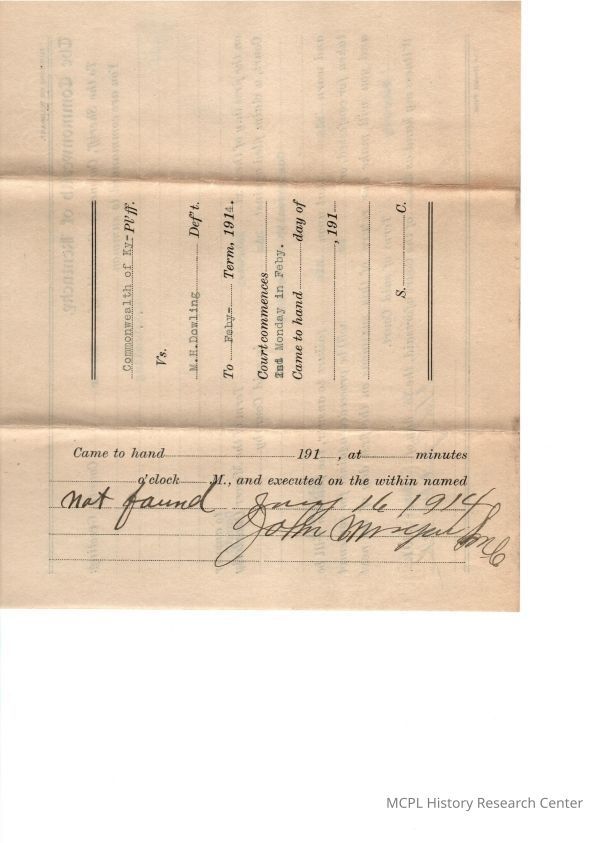 Commonwealth of Ky- Pl'ff.
Vs.
M.H.Dowling Def't.
To Feby- Term, 1914.
Court commences
2nd Monday in Feby.
Came to hand day of
, 191
S. C.
Came to hand 191 , at minutes
o'clock M., and executed on the within named
not found Jany 16 1914
John
MCPL History Research Center